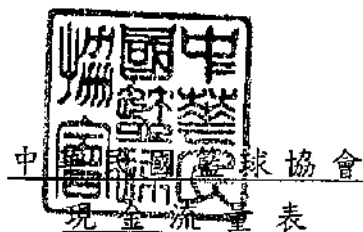 中華民國籃球協會
現金流量表